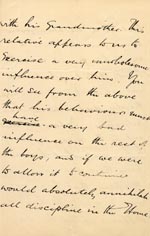 with his Grandmother. This
relative appears to us to
exercise a very unwholesome
influence over him. You
will see from the above
that his behaviour must
have
exercise a very bad
influence on the rest of
the boys, and if we were
to allow it to continue
would absolutely annihilate
all discipline in the Home